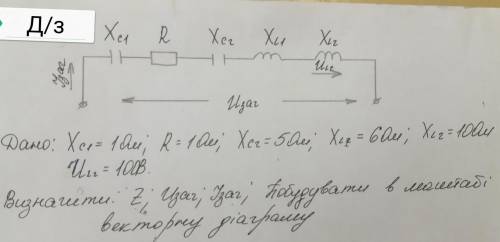 Д/з
Xc1 R Xc2 XL1 XL2
Iзаг UL2
Uзаг
Дано: Xc1 = 1Ом; R = 1Ом; Xc2 = 5Ом; XL2 = 6Ом; XL2 = 10Ом
UL2 = 100В.
Визначити: Z; Uзаг; Iзаг; Побудувати в масштабі
векторну діаграму